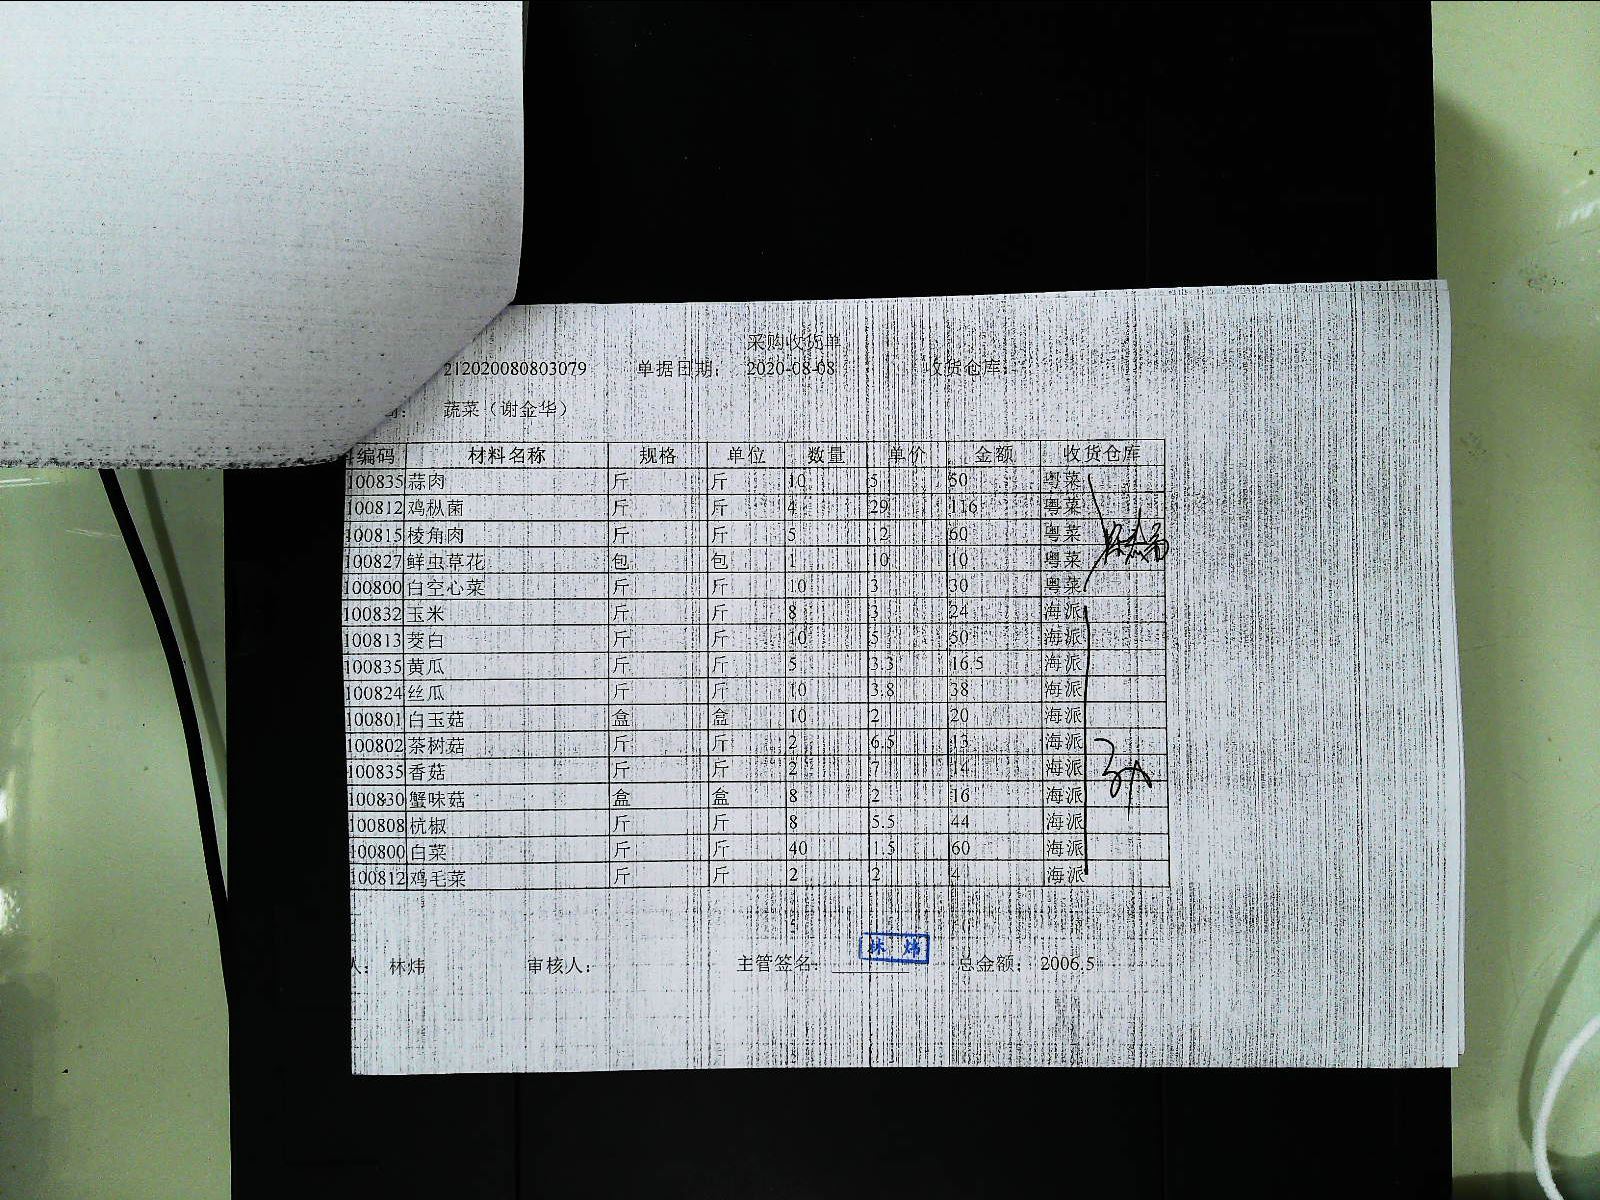 采购收货单
212020080803079 单据日期： 2020-08-08 收货仓库：
商： 蔬菜（谢金华）
编码 材料名称 规格 单位 数量 单价 金额 收货仓库
100835 蒜肉 斤 斤 10 5 50 粤菜
100812 鸡枞菌 斤 斤 4 29 116 粤菜
100815 棱角肉 斤 斤 5 2 60 粤菜
100827 鲜虫草花 包 包 1 10 10 粤菜
100800 白空心菜 斤 斤 10 3 30 粤菜
100832 玉米 斤 斤 8 3 24 海派
100813 茭白 斤 斤 10 5 50 海派
100835 黄瓜 斤 斤 5 3.3 16.5 海派
100824 丝瓜 斤 斤 10 3.8 38 海派
100801 白玉菇 盒 盒 10 2 20 海派
100802 茶树菇 斤 斤 2 6.5 13 海派
100835 香菇 斤 斤 2 7 14 海派
100830 蟹味菇 盒 盒 8 2 16 海派
100808 杭椒 斤 斤 8 5.5 44 海派
100800 白菜 斤 斤 40 1.5 60 海派
100812 鸡毛菜 斤 斤 2 2 4 海派
林炜
人： 林炜 审核人： 主管签名： 总金额： 2006.5